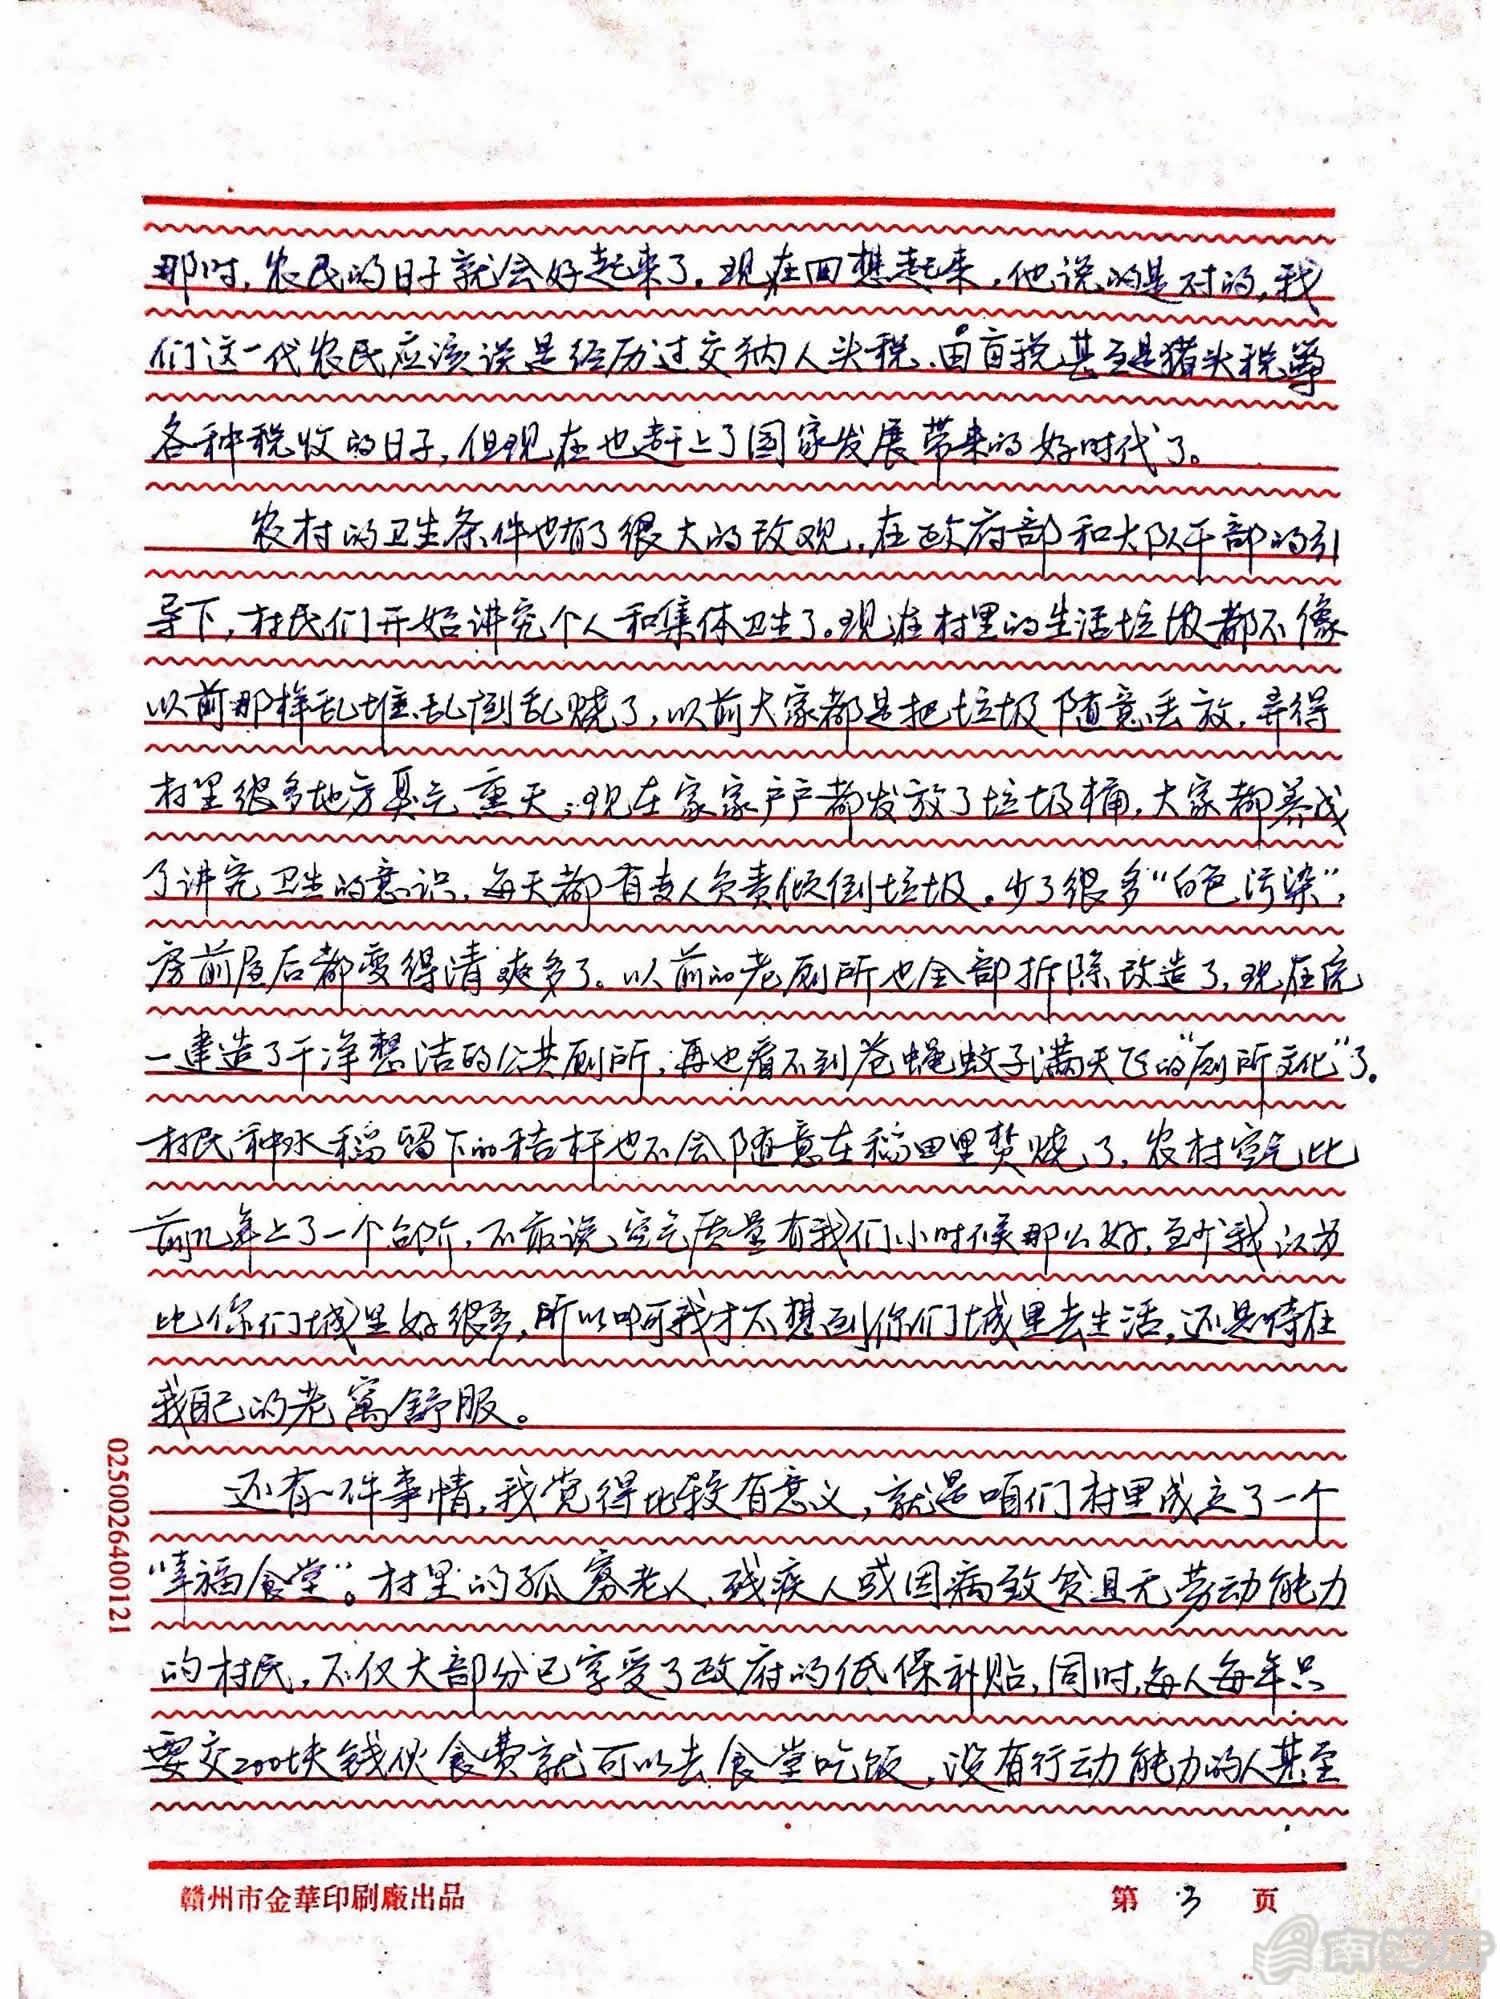 那时，农民的日子就会好起来了。现在回想起来，他说的是对的，我
们这一代农民应该说是经历过交纳人头税、田亩税甚至是猪头税等
各种税收的日子，但现在也赶上了国家发展带来的好时代了。
农村的卫生条件也有了很大的改观，在政府部和大队干部的引
导下，村民们开始讲究个人和集体卫生了。现在村里的生活垃圾都不像
以前那样乱堆乱倒乱烧了，以前大家都是把垃圾随意丢放，弄得
村里很多地方臭气熏天；现在家家户户都发放了垃圾桶，大家都养成
了讲究卫生的意识，每天都有专人负责倾倒垃圾。少了很多“白色污染”，
房前屋后都变得清爽多了。以前的老厕所也全部拆除改造了，现在统
一建造了干净整洁的公共厕所，再也看不到苍蝇蚊子满天飞的“厕所文化”了。
村民种水稻留下的秸杆也不会随意在稻田里焚烧了，农村空气比
前几年上了一个台阶，不敢说空气质量有我们小时候那么好，至少我认为
比你们城里好很多，所以啊我才不想到你们城里去生活，还是待在
我自己的老窝舒服。
还有一件事情，我觉得比较有意义，就是咱们村里成立了一个
“幸福食堂”。村里的孤寡老人、残疾人或因病致贫且无劳动能力
的村民，不仅大部分已享受了政府的低保补贴，同时，每人每年只
要交200块钱伙食费就可以去食堂吃饭，没有行动能力的人甚至
025002640012​1
赣州市金華印刷廠出品
第 3 页
南海网